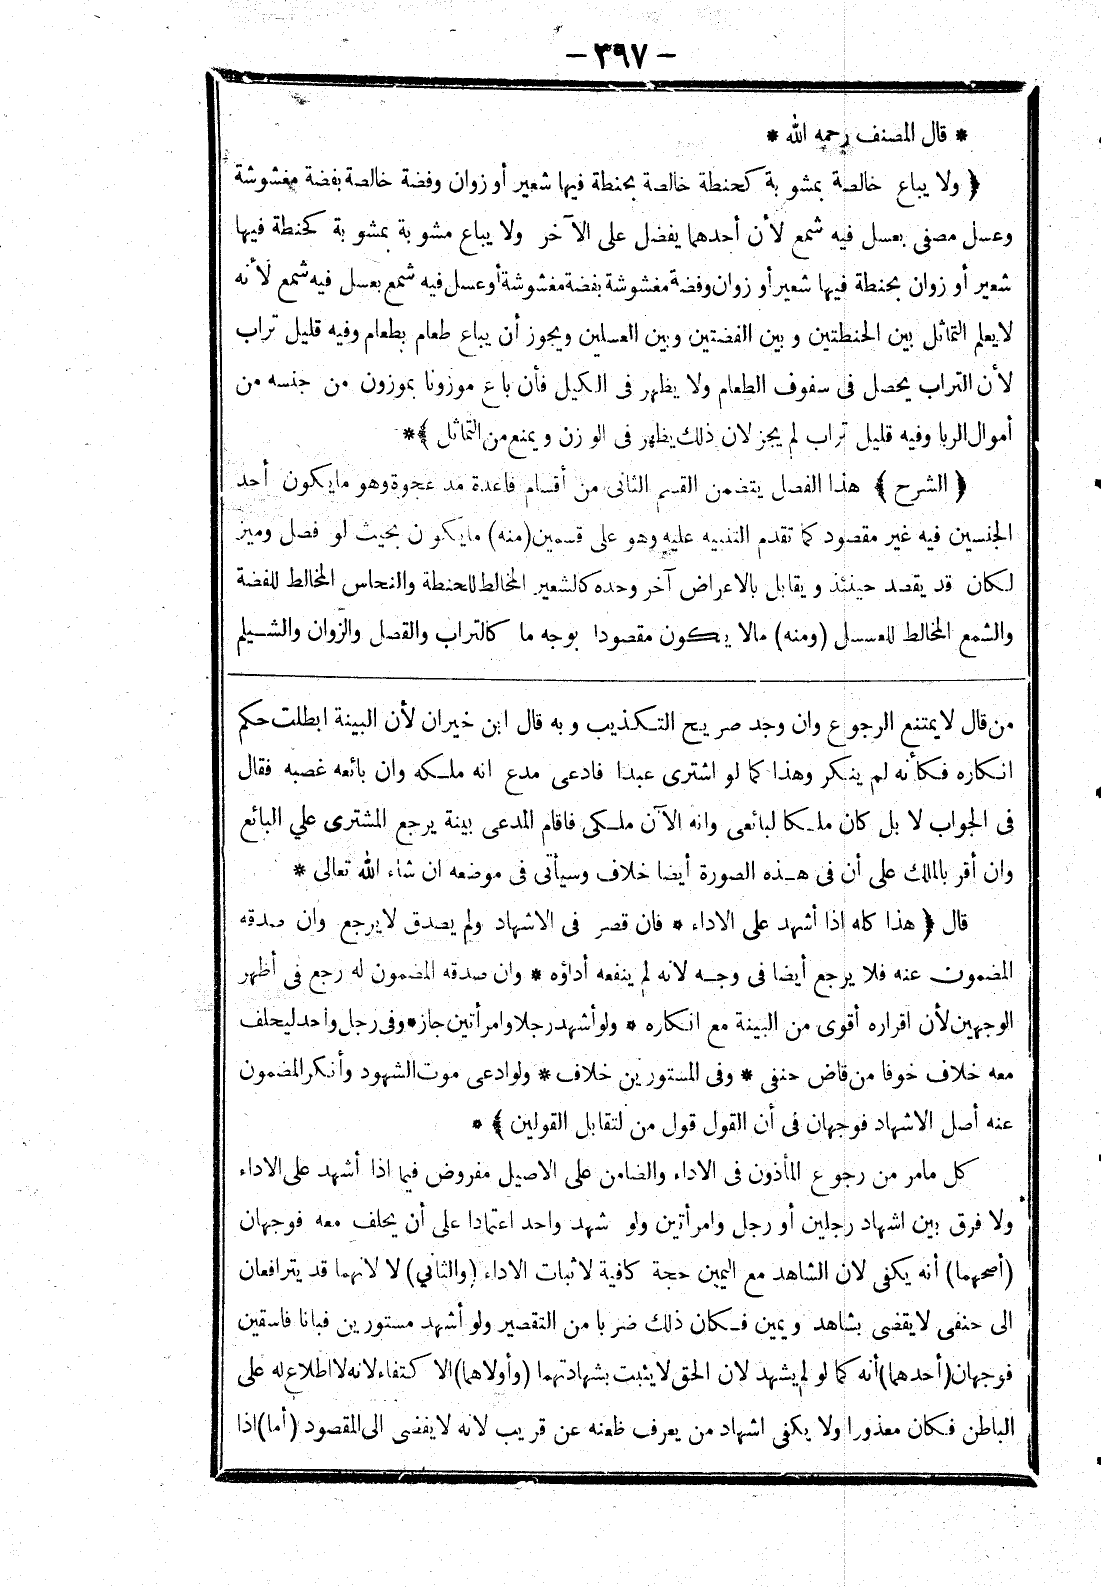 — ٣٩٧ —
* قال المصنف رحمه الله *
﴿ ولا يباع خالصة بمشوبة كحنطة خالصة بحنطة فيها شعير أو زوان وفضة خالصة بفضة مغشوشة
وعسل مصفى بعسل فيه شمع لأن أحدهما يفضل على الآخر ولا يباع مشوبة بمشوبة كحنطة فيها
شعير أو زوان بحنطة فيها شعير أو زوان وفضة مغشوشة بفضة مغشوشة أو عسل فيه شمع بعسل فيه شمع لأنه
لا يعلم التماثل بين الحنطتين وبين الفضتين وبين العسلين ويجوز أن يباع طعام بطعام وفيه قليل تراب
لأن التراب يحصل فى سفوف الطعام ولا يظهر فى الكيل فأن باع موزونا بموزون من جنسه من
أموال الربا وفيه قليل تراب لم يجز لان ذلك يظهر فى الوزن ويمنع من التماثل ﴾ *
﴿ الشرح ﴾ هذا الفصل يتضمن القسم الثانى من أقسام قاعدة مد عجوة وهو مايكون أحد
الجنسين فيه غير مقصود كما تقدم التنبيه عليه وهو على قسمين (منه) مايكون بحيث لو فصل وميز
لكان قد يقصد حينئذ ويقابل بالاعراض آخر وحده كالشعير المخالط للحنطة والنحاس المخالط للفضة
والشمع المخالط للعسل (ومنه) مالا يكون مقصودا بوجه ما كالتراب والقصل والزوان والشيلم
من قال لا يمتنع الرجوع وان وجد صريح التكذيب وبه قال ابن خيران لأن البينة ابطلت حكم
انكاره فكأنه لم ينكر وهذا كما لو اشترى عبدا فادعى مدع انه ملكه وان بائعه غصبه فقال
فى الجواب لا بل كان ملكا لبائعى وانه الآن ملكى فاقام المدعى بينة يرجع المشترى علي البائع
وان أقر بالملك على أن فى هذه الصورة أيضا خلاف وسيأتى فى موضعه ان شاء الله تعالى *
قال ﴿ هذا كله اذا أشهد على الاداء * فان قصر فى الاشهاد ولم يصدق لا يرجع وان صدقه
المضمون عنه فلا يرجع أيضا فى وجه لانه لم ينفعه أداؤه * وان صدقه المضمون له رجع فى أظهر
الوجهين لأن اقراره أقوى من البينة مع انكاره * ولو أشهد رجلا وامرأتين جاز * وفى رجل واحد ليحلف
معه خلاف خوفا من قاض حنفى * وفى المستورين خلاف * ولو ادعى موت الشهود وأنكر المضمون
عنه أصل الاشهاد فوجهان فى أن القول قول من لتقابل القولين ﴾ *
كل مامر من رجوع المأذون فى الاداء والضامن على الاصيل مفروض فيما اذا أشهد على الاداء
ولا فرق بين اشهاد رجلين أو رجل وامرأتين ولو شهد واحد اعتمادا على أن يحلف معه فوجهان
(أصحهما) أنه يكفى لان الشاهد مع اليمين حجة كافية لاثبات الاداء (والثاني) لا لانهما قد يترافعان
الى حنفى لا يقضى بشاهد ويمين فكان ذلك ضربا من التقصير ولو أشهد مستورين فبانا فاسقين
فوجهان (أحدهما) أنه كما لو لم يشهد لان الحق لا يثبت بشهادتهما (وأولاهما) الا كتفاء لانه لا اطلاع له على
الباطن فكان معذورا ولا يكفى اشهاد من يعرف ظعنه عن قريب لانه لا يفضى الى المقصود (أما) اذا